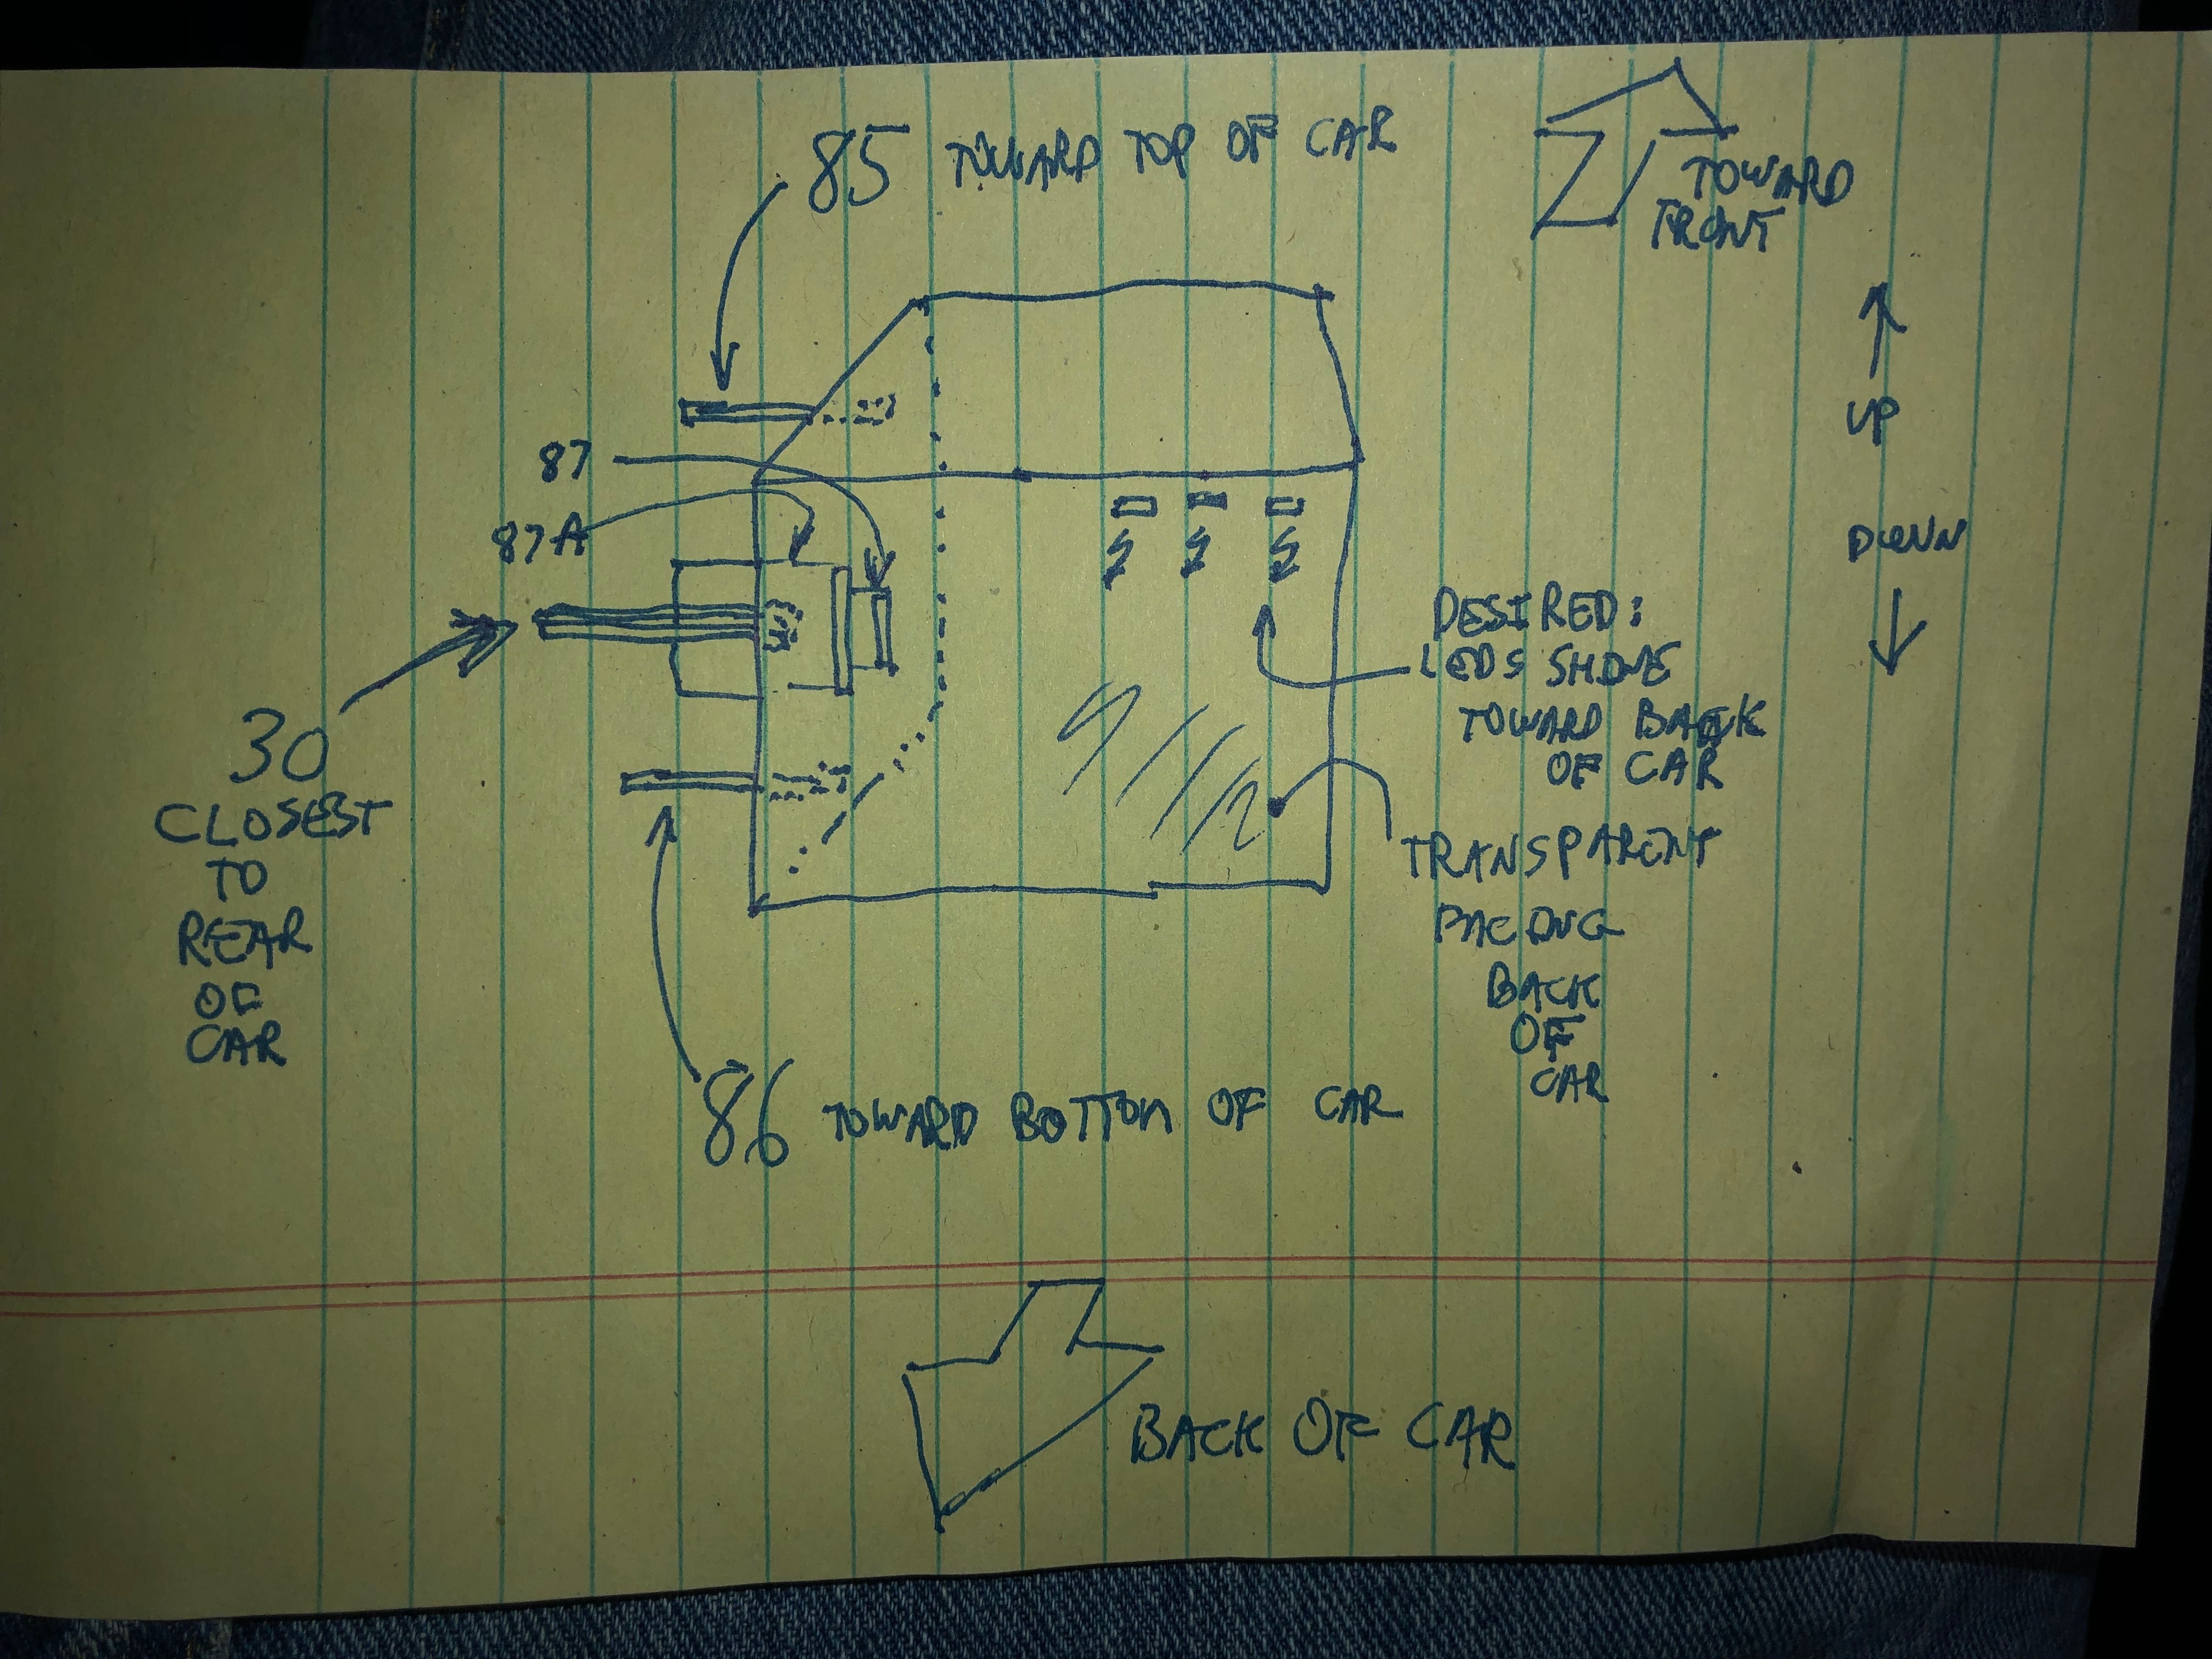 85 TOWARD TOP OF CAR
TOWARD
FRONT
87
87A
UP
DOWN
DESIRED:
LEDS SHINE
TOWARD BACK
OF CAR
30
CLOSEST
TO
REAR
OF
CAR
TRANSPARENT
FACING
BACK
OF
CAR
86 TOWARD BOTTOM OF CAR
BACK OF CAR